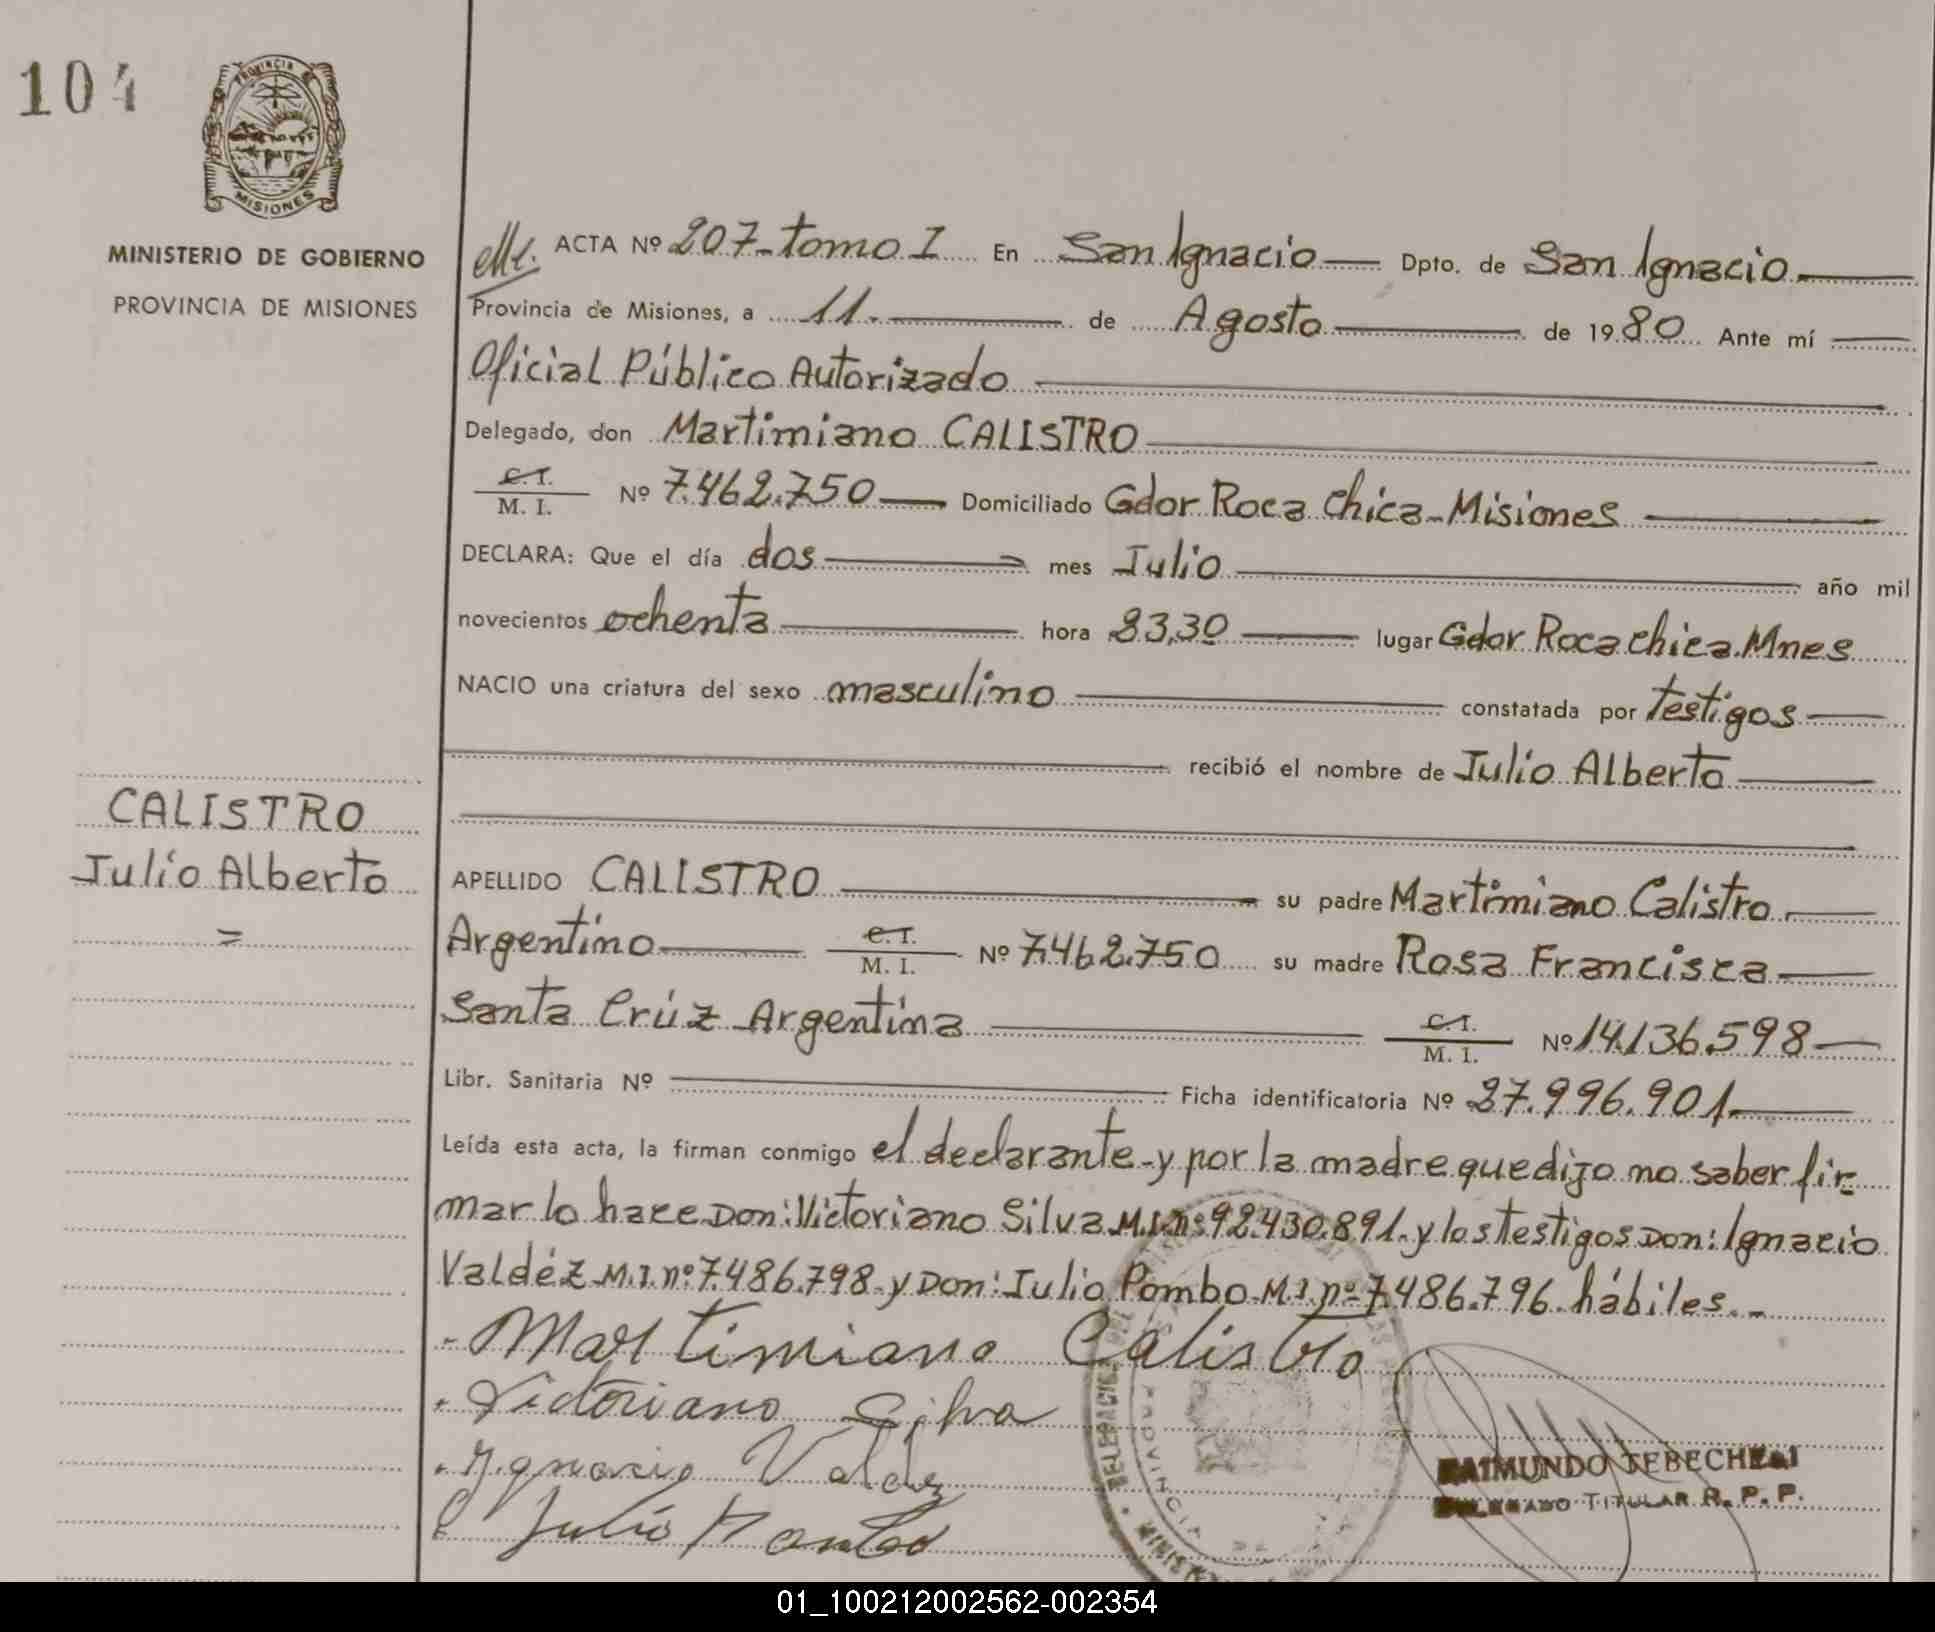 104
PROVINCIA DE
MISIONES
MINISTERIO DE GOBIERNO
PROVINCIA DE MISIONES
CALISTRO
Julio Alberto
=
ACTA Nº 207-tomo I En San Ignacio Dpto. de San Ignacio.
Provincia de Misiones, a 11. de Agosto de 1980 Ante mí
Oficial Público Autorizado
Delegado, don Martimiano CALISTRO
C.I. M.I. Nº 7.462.750 Domiciliado Gdor Roca Chica-Misiones
DECLARA: Que el día dos mes Julio año mil
novecientos ochenta hora 23,30 lugar Gdor Roca chica. Mnes
NACIO una criatura del sexo masculino constatada por testigos
recibió el nombre de Julio Alberto
APELLIDO CALISTRO su padre Martimiano Calistro
Argentino C.I. M.I. Nº 7.462.750 su madre Rosa Francisca
Santa Crúz Argentina C.I. M.I. Nº 14.136.598
Libr. Sanitaria Nº Ficha identificatoria Nº 27.996.901
Leída esta acta, la firman conmigo el declarante-y por la madre que dijo no saber fir
mar lo hace Don: Victoriano Silva M.I.nº 92.430.891.y los testigos Don: Ignacio
Valdéz M.I.nº 7.486.798-y Don: Julio Pombo M.I.nº 7.486.796. hábiles.-
Martimiano Calistro
Victoriano Silva
Ygnacio Valdez
Julio Pombo
RAIMUNDO TEBECHERI
DELEGADO TITULAR R. P. P.
01_100212002562-002354